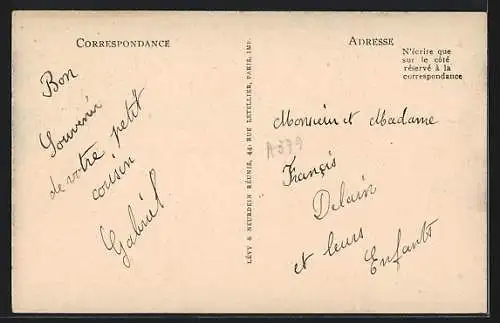 CORRESPONDANCE
Bon
Souvenir
de votre petit
cousin
Gabriel
LÉVY & NEURDEIN RÉUNIS, 44, RUE LETELLIER, PARIS, IMP.
ADRESSE
N'écrire que
sur le côté
réservé à la
correspondance
Monsieur et Madame
A379
Français
Delain
et leurs
Enfants